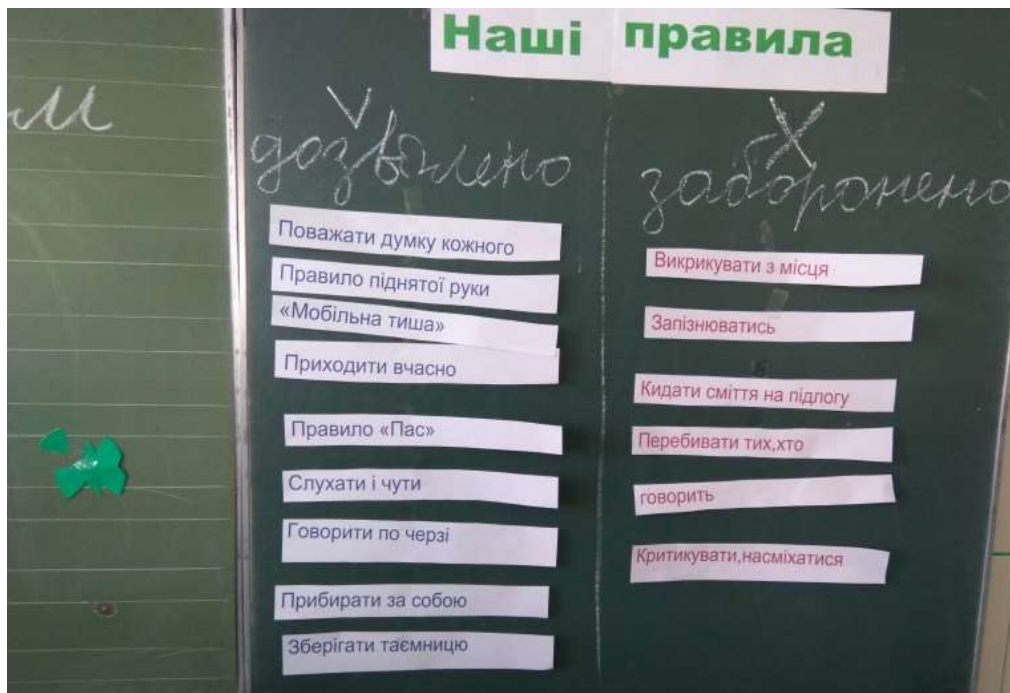 Наші правила
м
дозволено
Поважати думку кожного
Правило піднятої руки
«Мобільна тиша»
Приходити вчасно
Правило «Пас»
Слухати і чути
Говорити по черзі
Прибирати за собою
Зберігати таємницю
заборонено
Викрикувати з місця
Запізнюватись
Кидати сміття на підлогу
Перебивати тих,хто
говорить
Критикувати,насміхатися